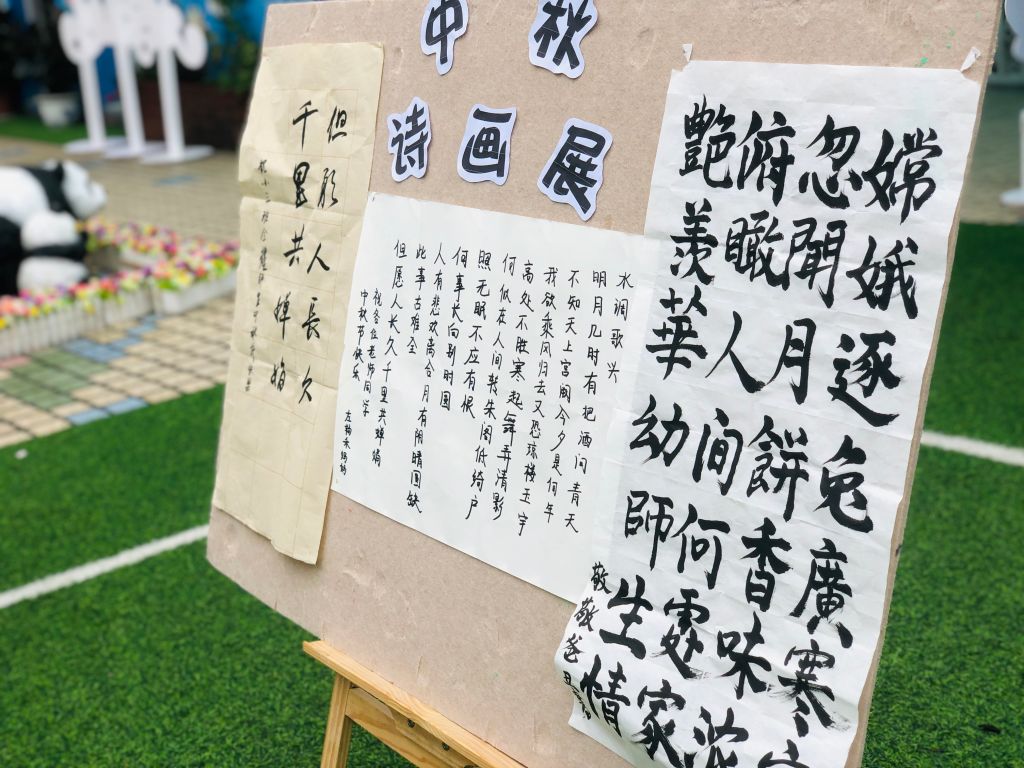 中秋
诗画展
但願人長久
千里共嬋娟
水调歌头
明月几时有把酒问青天
不知天上宫阙今夕是何年
我欲乘风归去又恐琼楼玉宇
高处不胜寒起舞弄清影
何似在人间转朱阁低绮户
照无眠不应有恨
何事长向别时圆
人有悲欢离合月有阴晴圆缺
此事古难全
但愿人长久千里共婵娟
祝各位老师同学
中秋节快乐
左翰禾妈妈
嫦娥逐兔廣寒宫
忽聞月餅香味浓
俯瞰人间何處家
艷羡華幼師生情
敬敬爸